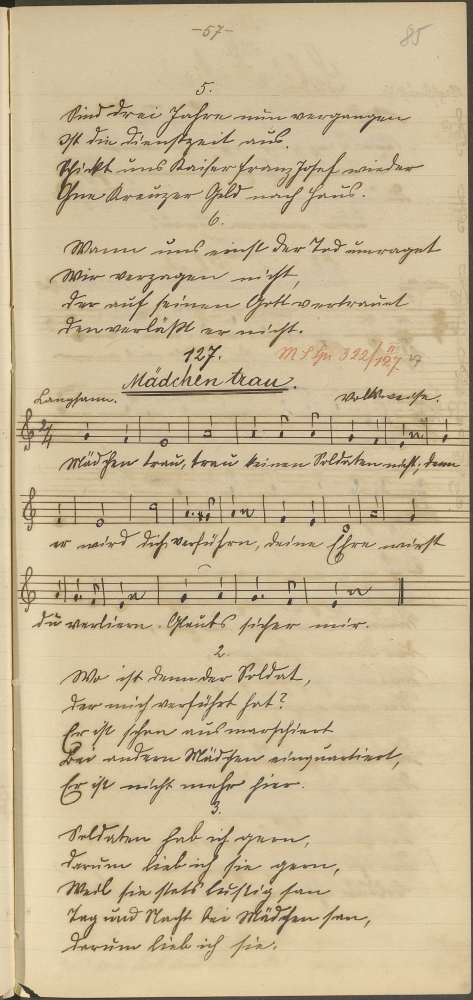 -57-
85
5.
Sind drei Jahre nun vergangen
Ist die Dienstzeit aus.
Schickt uns Kaiser Franz Josef wieder
Ohne Kreuzer Geld nach Haus.
6.
Wann uns einst der Tod umraget
Wir verzagen nicht,
Der auf seinen Gott vertrauet
Den verläßt er nicht.
127.
Mädchen trau.
Langsam.
Volksweise.
2/4
Mädchen trau, trau keinen Soldaten nicht, denn
er wird dich verführn, deine Ehre wirst
du verliern. Glaubs sicher mir.
2.
Wo ist denn der Soldat,
Der mich verführt hat?
Er ist schon ausmarschiert
Bei andern Mädchen einquartiert,
Er ist nicht mehr hier.
3.
Soldaten hab ich gern,
Darum lieb ich sie gern,
Weil sie stets lustig san
Tag und Nacht bei Mädchen san,
Darum lieb ich sie.